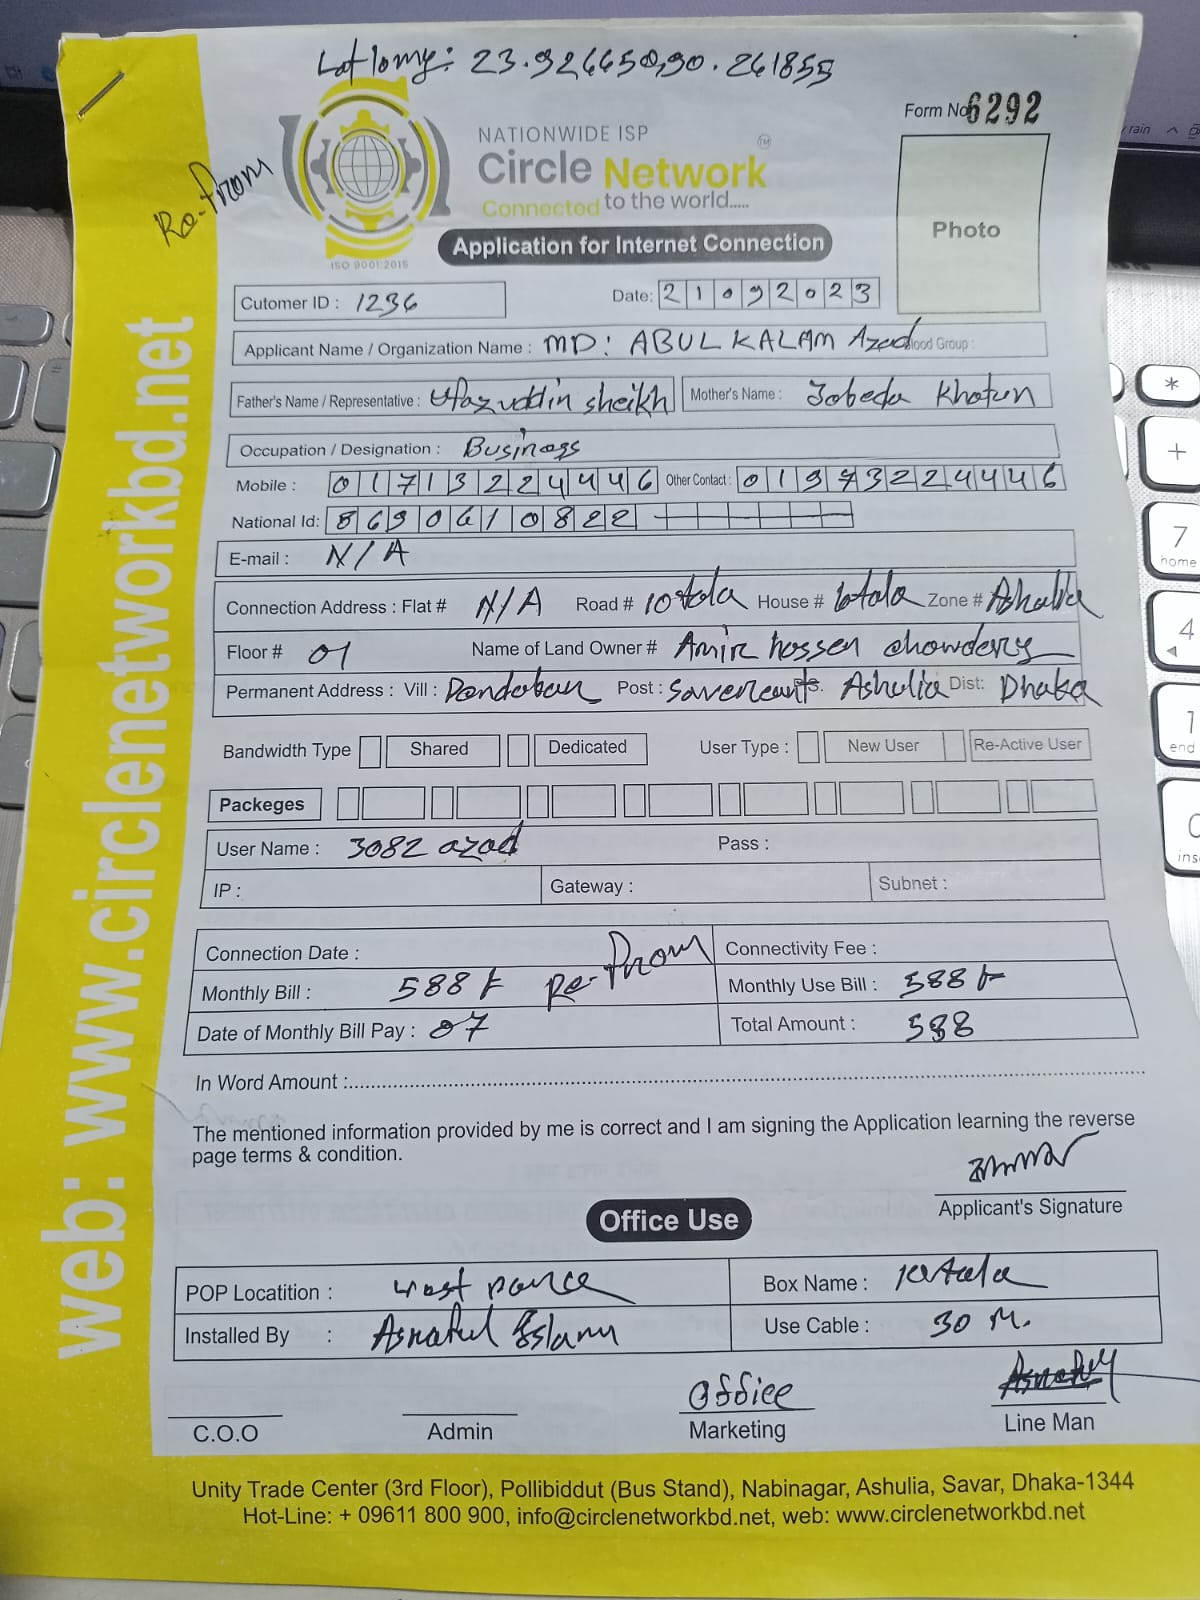 Lat lomg: 23.926650,90.261855
Form No 6292
Re-From
NATIONWIDE ISP
Circle Network TM
Connected to the world.....
ISO 9001:2015
Application for Internet Connection
Photo
Cutomer ID : 1236
Date: 21092023
Applicant Name / Organization Name : MD: ABUL KALAM Azad Blood Group :
Father's Name / Representative : Ufazuddin sheikh Mother's Name : Jobeda Khatun
Occupation / Designation : Business
Mobile : 01713224446 Other Contact : 01973224446
National Id: 8690610822
E-mail : N/A
Connection Address : Flat # N/A Road # 10tola House # 10tola Zone # Ashulia
Floor # 01 Name of Land Owner # Amir hossen chowdery
Permanent Address : Vill : Dendaban Post : Savercantt. Ashulia Dist: Dhaka
Bandwidth Type Shared Dedicated User Type : New User Re-Active User
Packeges
User Name : 3082 azad Pass :
IP : Gateway : Subnet :
Connection Date : Re-From Connectivity Fee :
Monthly Bill : 588 Monthly Use Bill : 588
Date of Monthly Bill Pay : 07 Total Amount : 588
In Word Amount :
The mentioned information provided by me is correct and I am signing the Application learning the reverse
page terms & condition.
Applicant's Signature
Office Use
POP Locatition : west Box Name : 10tala
Installed By : Asnaful Islam Use Cable : 30 M.
C.O.O Admin office Marketing Line Man
Unity Trade Center (3rd Floor), Pollibiddut (Bus Stand), Nabinagar, Ashulia, Savar, Dhaka-1344
Hot-Line: + 09611 800 900, info@circlenetworkbd.net, web: www.circlenetworkbd.net
web: www.circlenetworkbd.net
rain
*
+
7
home
4
1
end
0
ins